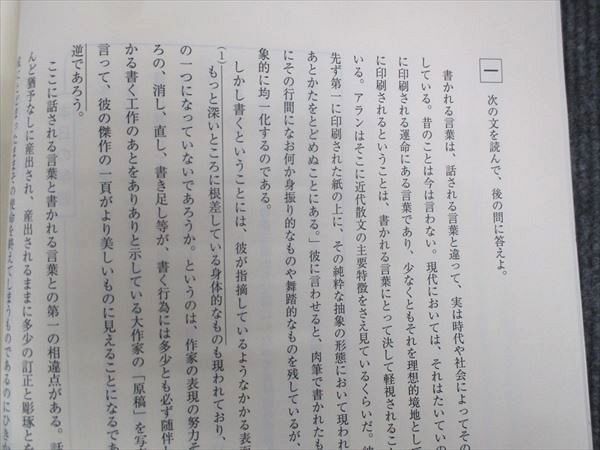 一
次の文を読んで、後の問に答えよ。
書かれる言葉は、話される言葉と違って、実は時代や社会によってその
している。昔のことは今は言わない。現代においては、それはたいていの
に印刷される運命にある言葉であり、少なくともそれを理想的境地として
に印刷されるということは、書かれる言葉にとって決して軽視されるこ
いる。アランはそこに近代散文の主要特徴をさえ見ているくらいだ。彼
先ず第一に印刷された紙の上に、その純粋な抽象の形態において現われ
あとかたをとどめぬことにある。」彼に言わせると、肉筆で書かれたも
にその行間になお何か身振り的なものや舞踏的なものを残しているが、
象的に均一化するのである。
しかし書くということには、彼が指摘しているようなかかる表面
(1)もっと深いところに根差している身体的なものも現われており、
の一つになっていないであろうか。というのは、作家の表現の努力そ
ろの、消し、直し、書き足し等が、書く行為には多少とも必ず随伴し
かる書く工作のあとをありありと示している大作家の「原稿」を写
言って、彼の傑作の一頁がより美しいものに見えることになるであ
逆であろう。
ここに話される言葉と書かれる言葉との第一の相違点がある。話
んど猶予なしに産出され、産出されるままに多少の訂正と彫琢とを
の使命を終えてしまうものであるのにひきか